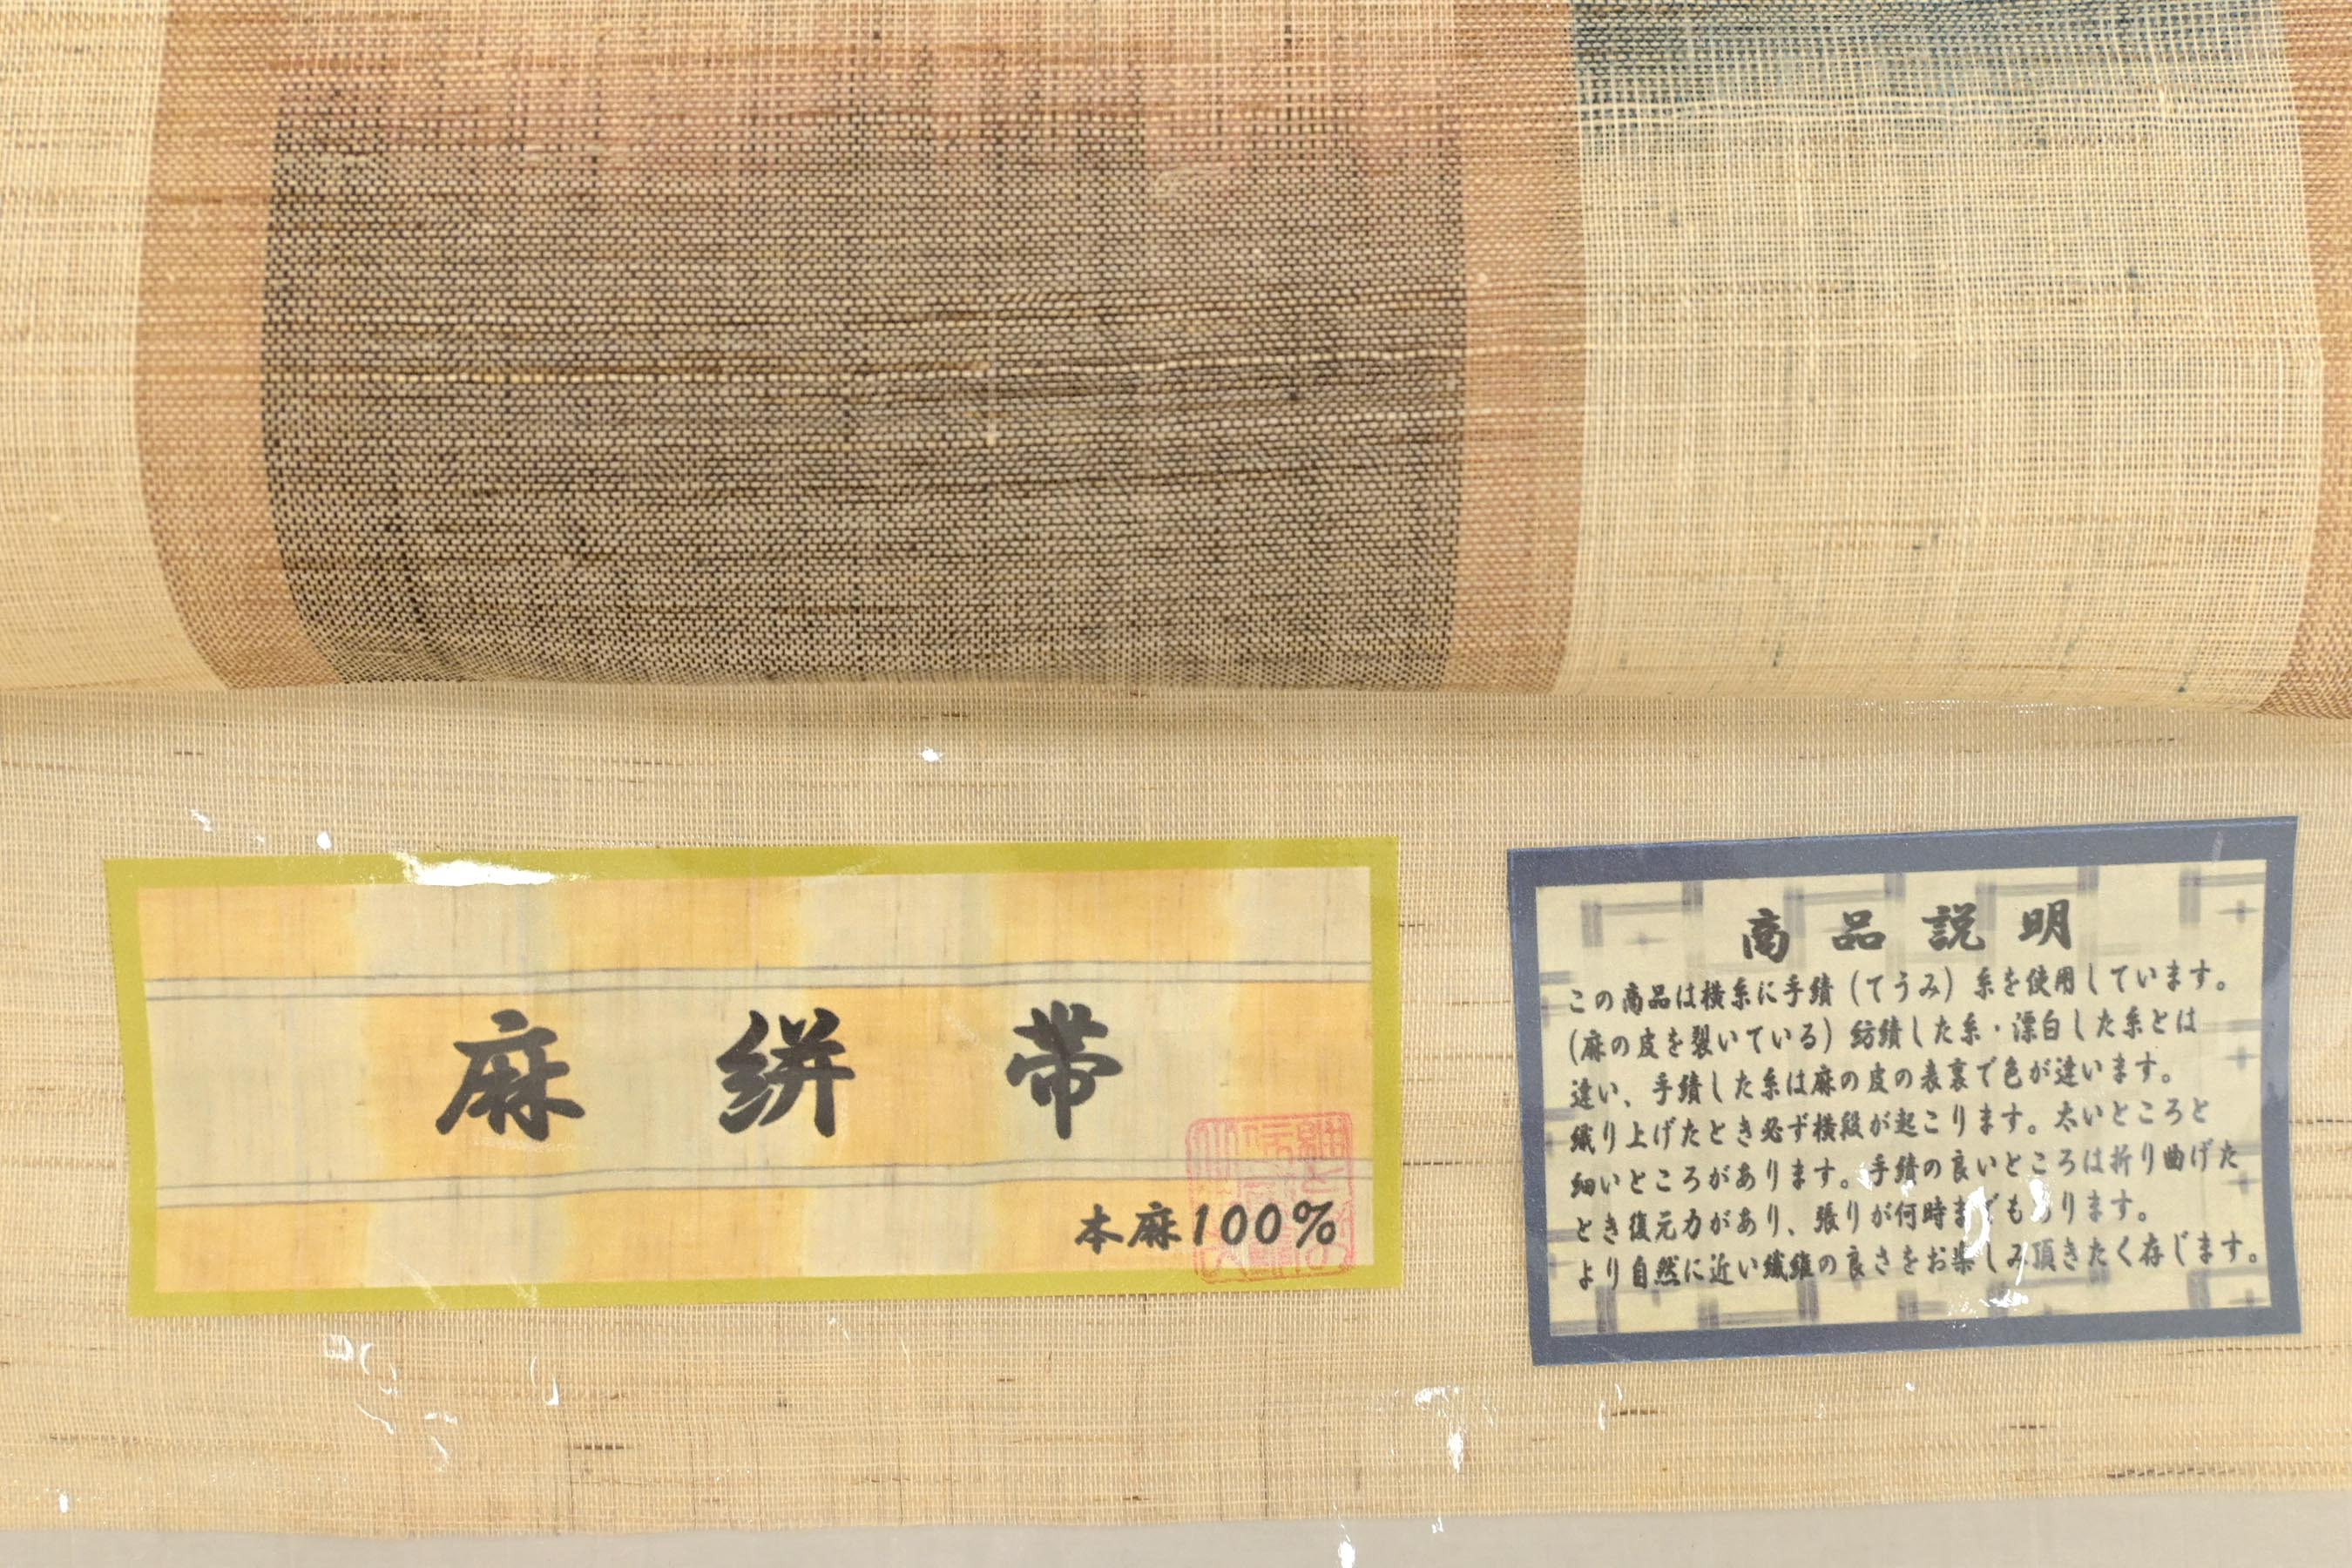 麻絣帯
本麻100%
商品説明
この商品は横糸に手績(てうみ)糸を使用しています。
(麻の皮を裂いている)紡績した糸・漂白した糸とは
違い、手績した糸は麻の皮の表裏で色が違います。
織り上げたとき必ず横段が起こります。太いところと
細いところがあります。手績の良いところは折り曲げた
とき復元力があり、張りが何時までもあります。
より自然に近い繊維の良さをお楽しみ頂きたく存じます。